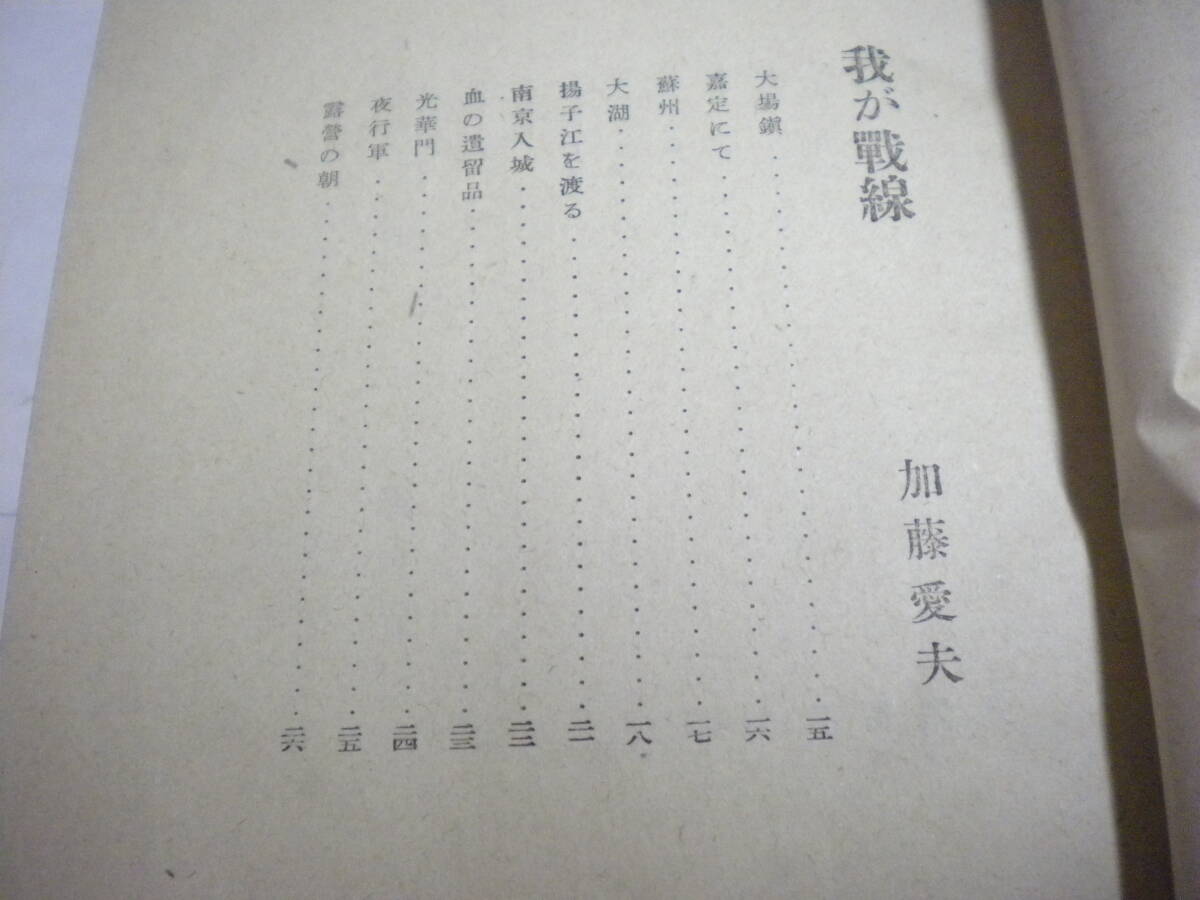 我が戰線
加藤愛夫
大場鎭 一五
嘉定にて 一六
蘇州 一七
大湖 一八
揚子江を渡る 二一
南京入城 二二
血の遺留品 二三
光華門 二四
夜行軍 二五
露營の朝 二六